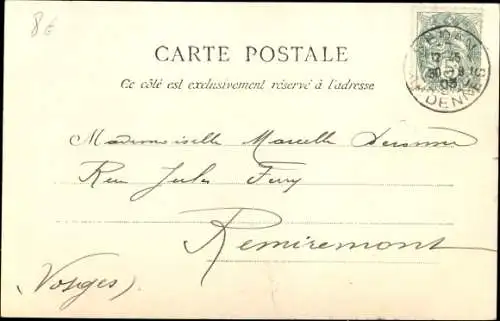 8€
CARTE POSTALE
Ce côté est exclusivement réservé à l'adresse
SEDAN
ARDENNES
Mademoiselle Marcelle
Rue Jules Ferry
Remiremont
(Vosges)